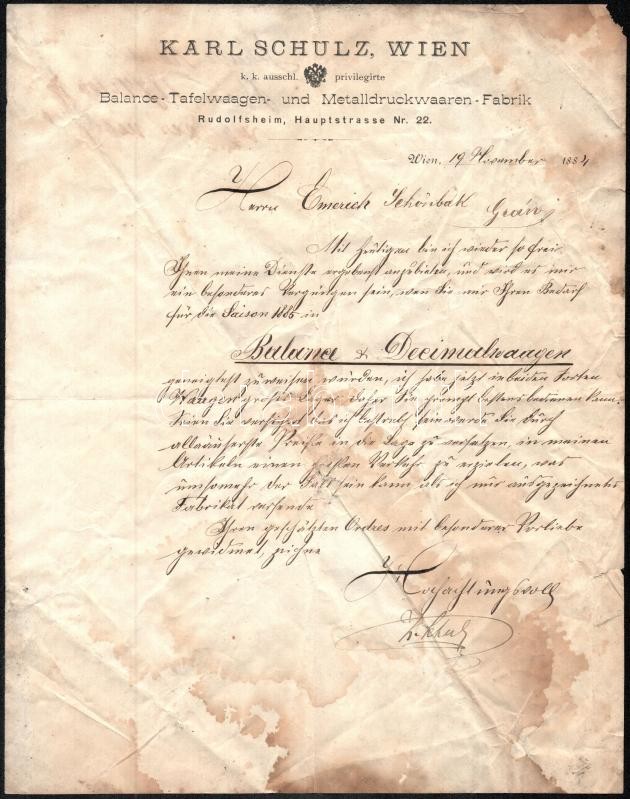 KARL SCHULZ, WIEN
k. k. ausschl. privilegirte
Balance-Tafelwaagen- und Metalldruckwaaren-Fabrik
Rudolfsheim, Hauptstrasse Nr. 22.
Wien, 19 November 1884
Herrn Emerich Schönbakl
Gran
Mit Heutigen bin ich wieder so frei
Ihnen meine Dienste ergebenst anzubieten, und wird es mir
ein besonderes Vergnügen sein, wen Sie mir Ihren Bedarf
für die Saison 1885 in
Balance & Decimalwaagen
geneigtest zuweisen würden, ich habe jetzt in beiden Sorten
Waagen großes Lager, daher Sie prompt bestens bedienen kann.
Seien Sie versichert das ich bestrebt sein werde Sie durch
alläußerste Preise in die Lage zu versetzen, in meinen
Artikeln einen großen Verkehr zu erzielen, was
umsomehr der Fall sein kann, als ich nur ausgezeichnetes
Fabrikat versende
Ihren geschätzten Ordres mit besonderer Vorliebe
gewidmet, zeichne
Hochachtungsvoll